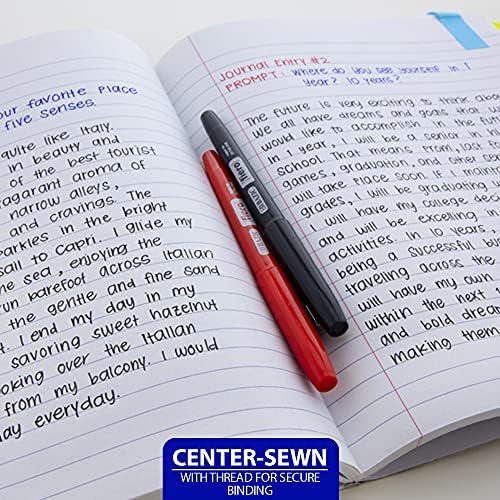 our favorite place
five senses.
quite like Italy.
in beauty and
of the best tourist
fragarant aroma of
narrow alleys,
and cravings. The
parkies in the bright
sail to Capri. I glide my
the sea, enjoying the
run barefoot across Italian
the gentle and fine sand
I end my day in my
savoring sweet hazelnut
ooking over the Italian
from my balcony. I would
ay everyday.
Journal Entry #2
PROMPT: Where do you see yourself in 1
year? 10 years?
The future is very exciting to think abou
We all have dreams and goals that
would like to accomplish. The futur
In 1 year, I will be a senior in
school. That means prom, last
games, graduation, and other se
will take place soon. If I mainta
grades, I will be graduating
I will have my college dec
and will be excelling
activities. In 10 years,
being a successful bu
traveling across the
will have my own
within the next
and bold dream
making them
Hero
CENTER-SEWN
WITH THREAD FOR SECURE
BINDING